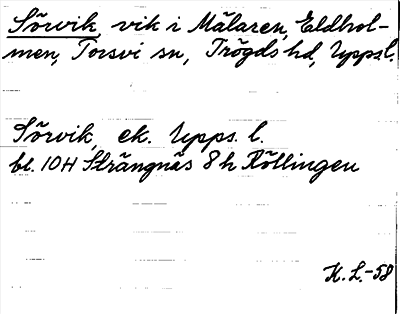 Sörvik, vik i Mälaren, Eldhol-
men, Torsvi sn, Trögds hd, Upps. l.
Sörvik, ek. Upps. l.
bl. 10H Strängnäs 8h Köllingen
K. L.-58